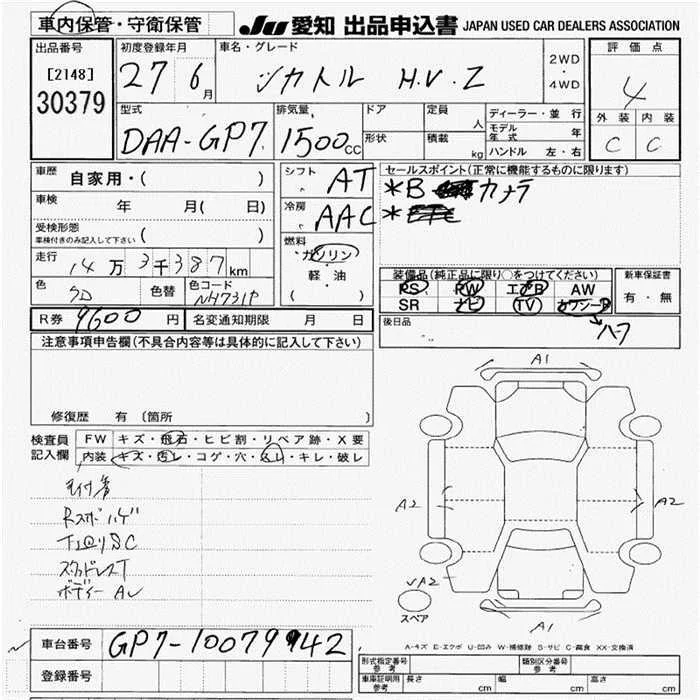 車内保管・守衛保管 JU 愛知 出品申込書 JAPAN USED CAR DEALERS ASSOCIATION
出品番号 初度登録年月 車名・グレード 2WD・4WD 評価点
[2148] 27 6月 シャトル H.V.Z 4
30379
型式 排気量 ドア 定員 人 ディーラー・並行 外装 内装
DAA-GP7 1500cc 形状 積載 kg モデル年式 年 C C
ハンドル 左・右
車歴 自家用・( ) シフト AT セールスポイント(正常に機能するものに限ります)
車検 年 月( 日) 冷房 AAC *B カメラ
受検形態 ( ) *
車検付きのみ記入して下さい
走行 14万3千387km 燃料 ガソリン
色 色替 色コード NH731P 軽・油 ( )
装備品(純正品に限り○をつけてください) 新車保証書
PS PW エアB AW 有・無
SR ナビ TV カワシート
R券 9600円 名変通知期限 月 日 後日品
ハーフ
注意事項申告欄(不具合内容等は具体的に記入して下さい)
修復歴 有 〔箇所 〕
検査員記入欄 FW キズ・飛石・ヒビ割・リペア跡・X要
内装 キズ・汚レ・コゲ・穴・スレ・キレ・破レ
A1
A2 A2
Rスポハゲ
スタッドレスT
ボディー AU
A2
スペア
A1
A-キズ E-エクボ U-凹み W-補修跡 S-サビ C-腐食 XX-交換済
車台番号 GP7-1007942
登録番号
形式指定番号 参考 類別区分番号 参考
車庫証明用 参考 長さ cm 幅 cm 高さ cm